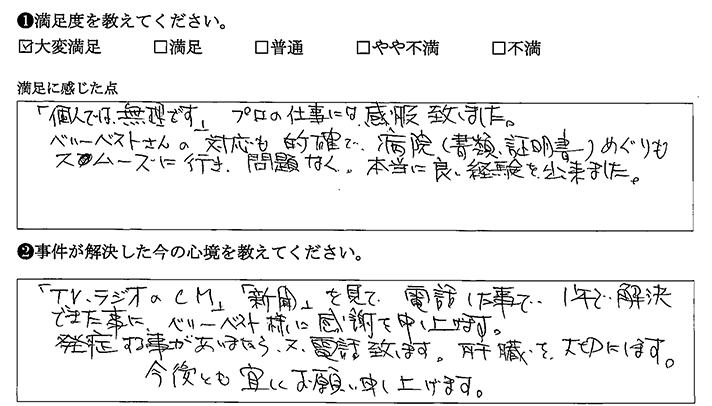 ❶満足度を教えてください。
☑大変満足 □満足 □普通 □やや不満 □不満
満足に感じた点
「個人では、無理です」 プロの仕事には、感服致しました。
ベリーベストさんの対応も的確で、病院(書類、証明書)めぐりも
スムーズに行き、問題なく。本当に良い経験を出来ました。
❷事件が解決した今の心境を教えてください。
「TV、ラジオのCM」「新聞」を見て、電話した事で、1年で解決
できた事に、ベリーベスト様に感謝を申し上げます。
発症する事がありましたら、又、電話致します。肝臓を大切にします。
今後とも宜しくお願い申し上げます。